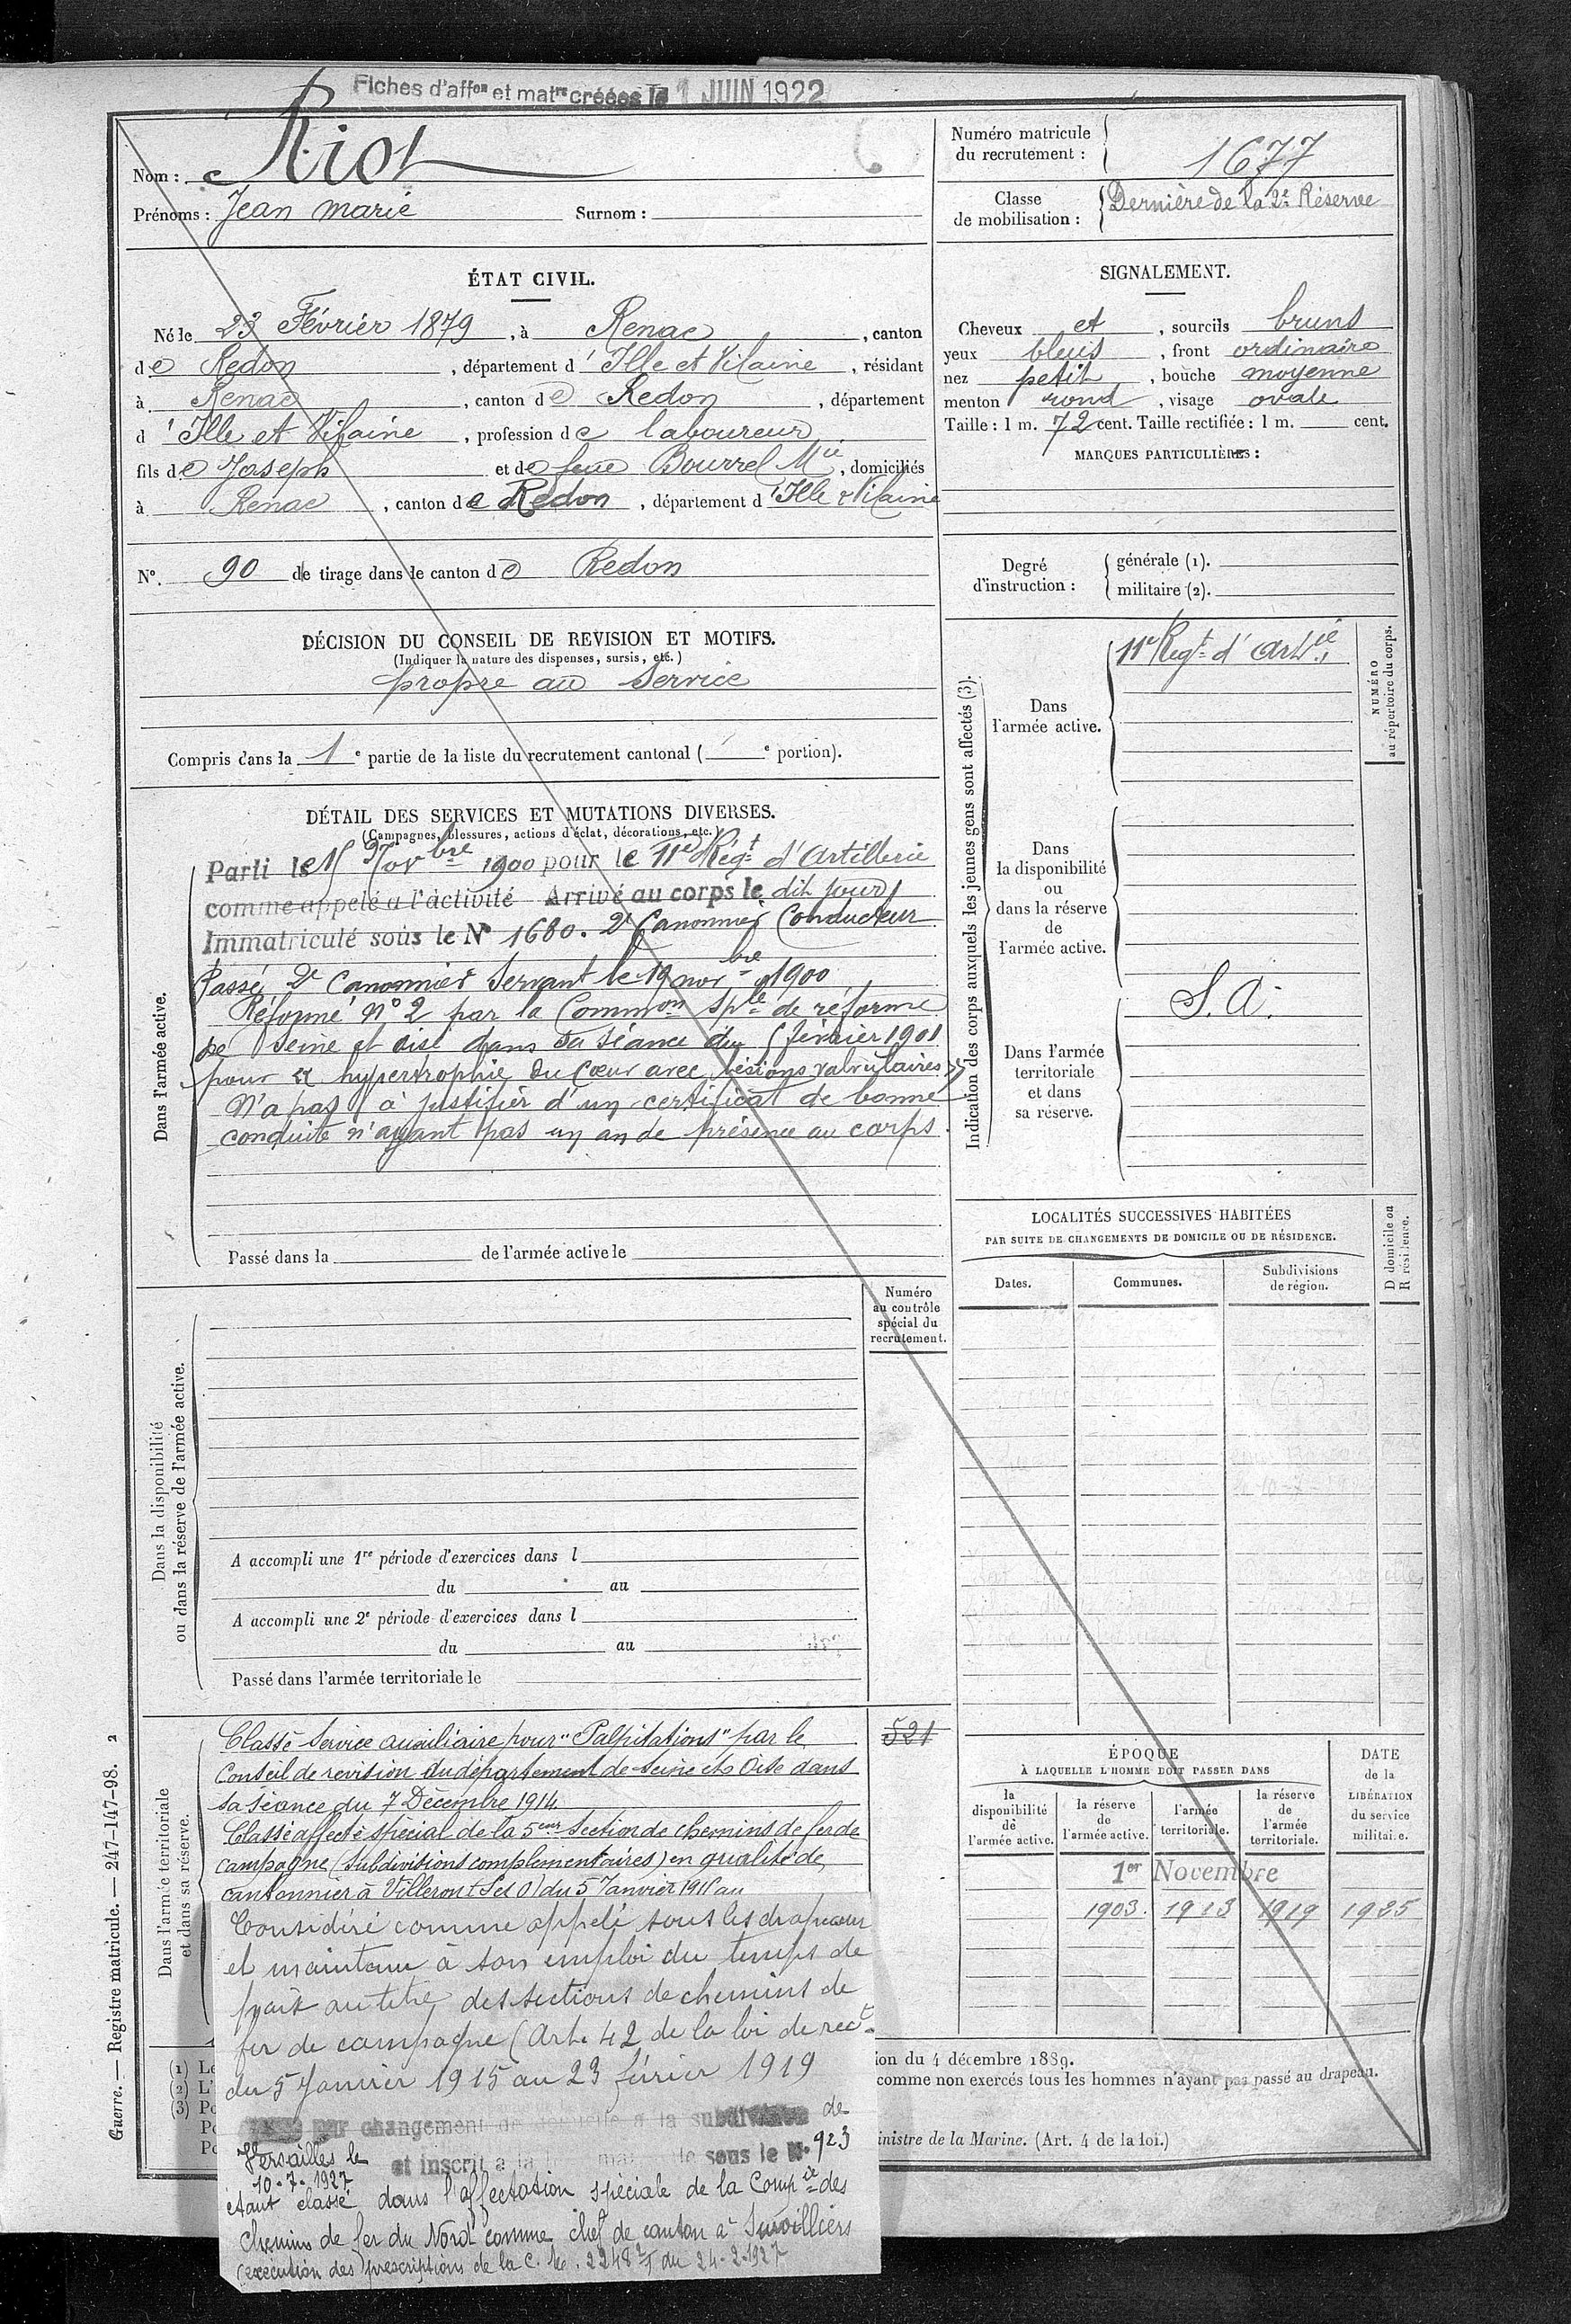 Fiches d'affon et matre créées le 1 JUIN 1922
Nom : Riot
Prénoms : Jean Marie Surnom :
Numéro matricule
du recrutement : 1677
Classe
de mobilisation : Dernière de la 2e Réserve
ÉTAT CIVIL.
Né le 23 Février 1879, à Renac, canton
de Redon, département d'Ille et Vilaine, résidant
à Renac, canton de Redon, département
d'Ille et Vilaine, profession de laboureur
fils de Joseph et de feue Bourrel Mie, domiciliés
à Renac, canton de Redon, département d'Ille & Vilaine
No. 90 de tirage dans le canton de Redon
SIGNALEMENT.
Cheveux et, sourcils bruns
yeux bleus, front ordinaire
nez petit, bouche moyenne
menton rond, visage ovale
Taille : 1 m. 72 cent. Taille rectifiée : 1 m. cent.
MARQUES PARTICULIÈRES :
Degré
d'instruction :
générale (1).
militaire (2).
DÉCISION DU CONSEIL DE REVISION ET MOTIFS.
(Indiquer la nature des dispenses, sursis, etc.)
propre au Service
Compris dans la 1e partie de la liste du recrutement cantonal ( e portion).
DÉTAIL DES SERVICES ET MUTATIONS DIVERSES.
(Campagnes, blessures, actions d'éclat, décorations, etc.)
Dans l'armée active.
Parti le 15 Novbre 1900 pour le 11e Régt d'Artillerie
comme appelé à l'activité Arrivé au corps le dit jour
Immatriculé sous le No 1680. 2e Canonnier Conducteur
Passé 2e Canonnier Servant le 19 novbre 1900
Réformé No 2 par la Common sple de réforme
de Seine et Oise dans sa séance du 5 février 1901
pour "hypertrophie du Cœur avec lésions valvulaires"
N'a pas à justifier d'un certificat de bonne
conduite n'ayant pas un an de présence au corps.
Passé dans la de l'armée active le
Indication des corps auxquels les jeunes gens sont affectés (3).
NUMÉRO
au répertoire du corps.
Dans
l'armée active.
11e Regt d'Artie
Dans
la disponibilité
ou
dans la réserve
de
l'armée active.
Dans l'armée
territoriale
et dans
sa réserve.
S.A.
LOCALITÉS SUCCESSIVES HABITÉES
PAR SUITE DE CHANGEMENTS DE DOMICILE OU DE RÉSIDENCE.
Dates. Communes. Subdivisions
de région.
D domicile ou
R résidence.
Numéro
au contrôle
spécial du
recrutement.
Dans la disponibilité
ou dans la réserve de l'armée active.
A accompli une 1re période d'exercices dans l
du au
A accompli une 2e période d'exercices dans l
du au
Passé dans l'armée territoriale le
Dans l'armée territoriale
et dans sa réserve.
Classé Service auxiliaire pour "Palpitations" par le
Conseil de revision du département de Seine et Oise dans
sa séance du 7 Décembre 1914.
Classé affecté spécial de la 5eme Section de chemins de fer de
campagne (Subdivisions complementaires) en qualité de
cantonnier à Villeron (S et O) du 5 Janvier 1915 au
521
Considéré comme appelé sous les drapeaux
et maintenu à son emploi du temps de
paix au titre des sections de chemins de
fer de campagne (Art. 42 de la loi de rect.
du 5 Janvier 1915 au 23 février 1919
par changement de domicile à la subdivision de
Versailles le et inscrit a la sous le No 923
10-7-1927
étant classé dans l'affectation spéciale de la Compie des
Chemins de fer du Nord comme chef de canton à Survilliers
(exécution des prescriptions de la C. M. 2248 du 24-2-1927
ÉPOQUE
À LAQUELLE L'HOMME DOIT PASSER DANS
la
disponibilité
de
l'armée active.
la réserve
de
l'armée active.
l'armée
territoriale.
la réserve
de
l'armée
territoriale.
DATE
de la
LIBÉRATION
du service
militaire.
1er Novembre
1903. 1913 1919 1925
(1) Le
(2) L'
(3) Po
Po
Po
ion du 4 décembre 1889.
comme non exercés tous les hommes n'ayant pas passé au drapeau.
inistre de la Marine. (Art. 4 de la loi.)
Guerre. — Registre matricule. — 247-147-98. 2